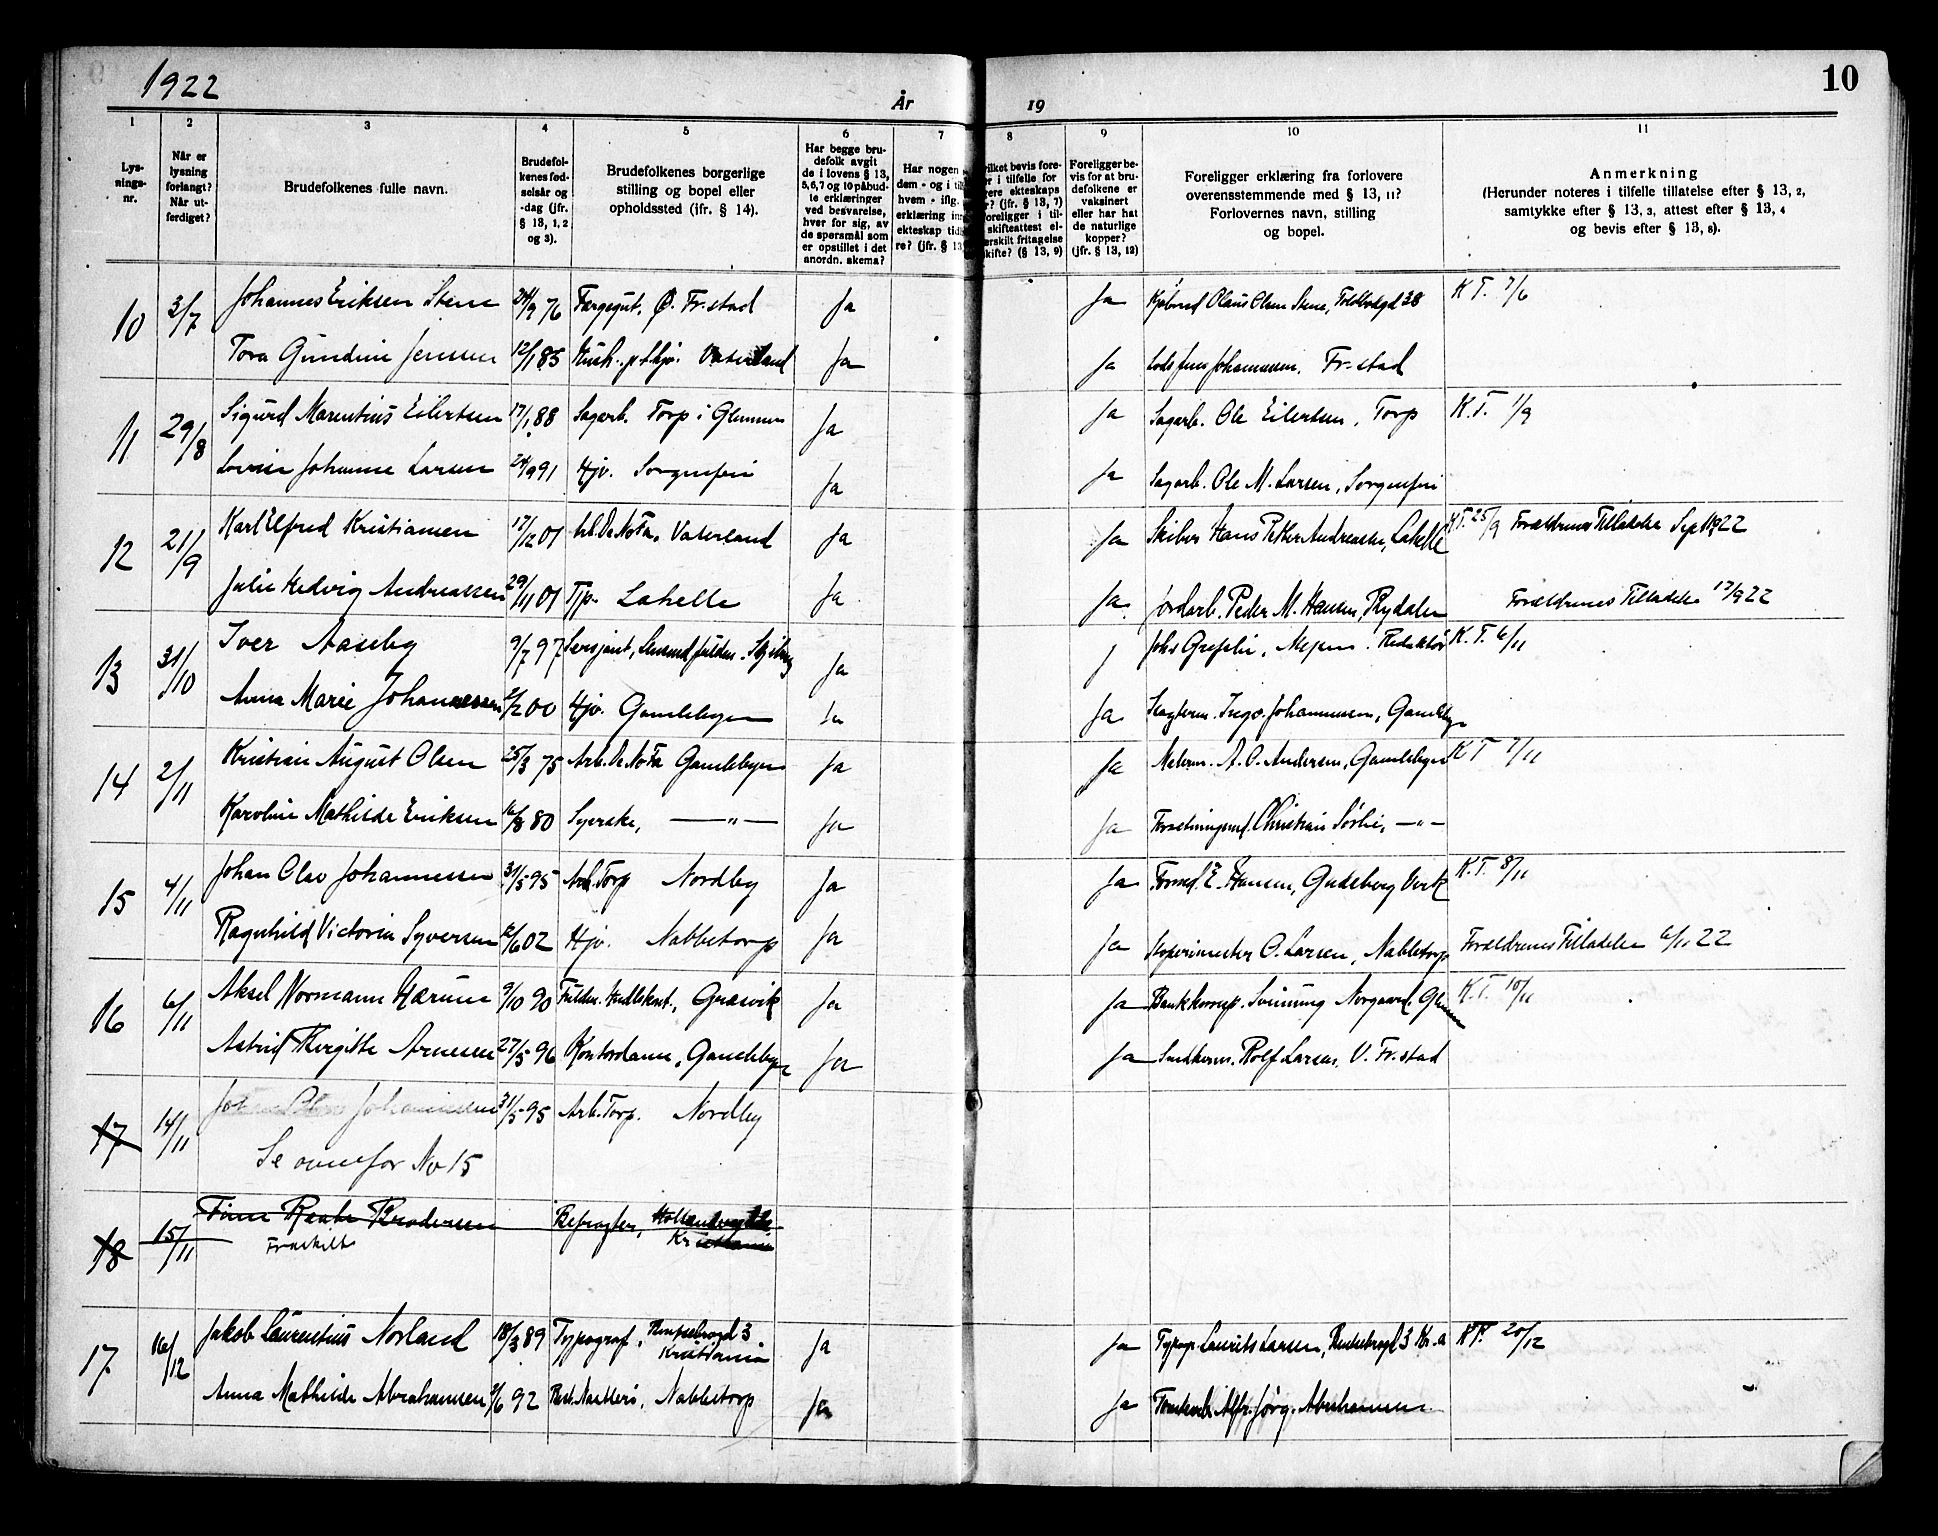 1922
År
19
10
1
2
3
4
5
6
7
8
9
10
11
Lys-
nings-
nr.
Når er
lysning
forlangt?
Når ut-
ferdiget?
Brudefolkenes fulle navn.
Brudefol-
kenes fød-
selsår og
-dag (jfr.
§ 13, 1, 2
og 3).
Brudefolkenes borgerlige
stilling og bopel eller
opholdssted (jfr. § 14).
Har begge bru-
defolk avgit
de i lovens § 13,
5,6,7 og 10 påbud-
te erklæringer
ved besvarelse,
hver for sig, av
de spørsmål som
er opstillet i det
anordn. skema?
Har nogen
dem - og i
hvem - iflg.
erklæring
ekteskap
re? (jfr. § 13
bevis fore-
i tilfelle for
ekteskaps
? (jfr. § 13, 7)
foreligger i til-
skifteattest el-
fritagelse
skifte? (§ 13, 9)
Foreligger be-
vis for at bru-
defolkene er
vaksinert
eller har hat
de naturlige
kopper?
(jfr. § 13, 12)
Foreligger erklæring fra forlovere
overensstemmende med § 13, 11?
Forlovernes navn, stilling
og bopel.
Anmerkning
(Herunder noteres i tilfelle tillatelse efter § 13, 2,
samtykke efter § 13, 3, attest efter § 13, 4
og bevis efter § 13, 8).
10 3/7 Johannes Eriksen Stene 24/9 76 Færgegut, Ø. Fr.stad Ja Ja Olaus Olsen Stene, 38 K T. 7/6
Tora Gundine Jensen 12/1 85 Vaterland Ja Ja Lods Jens Johannessen, Fr.stad
11 29/8 Sigurd Marentius Eilertsen 17/1 88 Sagarb. Torp i Glemmen Ja Ja Sagarb. Ole Eilertsen, Torp K.T. 1/9
Lovise Johanne Larsen 24/9 91 Hjv. Sorgenfri Ja Ja Sagarb. Ole M. Larsen, Sorgenfri
12 21/9 Karl Elfred Kristiansen 17/12 01 Arb. De No Fa, Vaterland Ja Ja Skiber Hans Petter Andreassen, Lahelle K.T. 25/9 Forældrenes Tilladelse Sept 1922
Julie Hedvig Andreassen 29/11 01 Tjp. Lahelle Ja Ja. Jordarb. Peder M. Hansen, Rydalen Forældrenes Tilladelse 17/9 22
13 31/10 Iver Aaseby 9/7 97 Sersjant, Ja J Johs Grefslie, Mysen. Redaktør K. T. 6/11
Anna Marie Johannessen 2/2 00 Hjv. Gamlebyen Ja Ja Ingv. Johannessen, Gamleby
14 2/11 Kristian August Olsen 25/3 75 Arb. De No Fa Gamlebyen Ja Ja Malerm. A. O. Andersen, Gamlebyen K T 7/11
Karoline Mathilde Eriksen 16/8 80 Syerske, —"— Ja Ja Christian Sørlie, —"—
15 4/11 Johan Olav Johannessen 31/5 95 Arb. Torp Nordby Ja Ja Formd. E. Hansen, Gudeberg Verk K.T. 8/11
Ragnhild Victoria Syversen 2/6 02 Hjv. Nabbetorp Ja Ja C. Larsen, Nabbetorp Forældrenes Tilladelse 6/11 22
16 6/11 Aksel Normann Hærum 9/10 90 Græsvik Ja Ja Norgaard K.T. 10/11
Astrid Birgitte Arnesen 27/5 96 Kontordame, Gamlebyen Ja Ja Rolf Larsen, V. Fr.stad
17 14/11 Johan Olav Johannessen 31/5 95 Arb. Torp. Nordby
Se ovenfor No 15
18 15/11 Brodersen Befragter,
Fraskilt Kristiania
17 16/12 Jakob Laurentius Norland 18/3 89 Typograf, 3 Kristiania Ja Ja Typogr. Laurits Larsen, 3 Kr.a KT. 20/12
Anna Mathilde Abrahamsen 2/6 92 Nabbetorp Ja Ja Alfr. Jørg. Abrahamsen